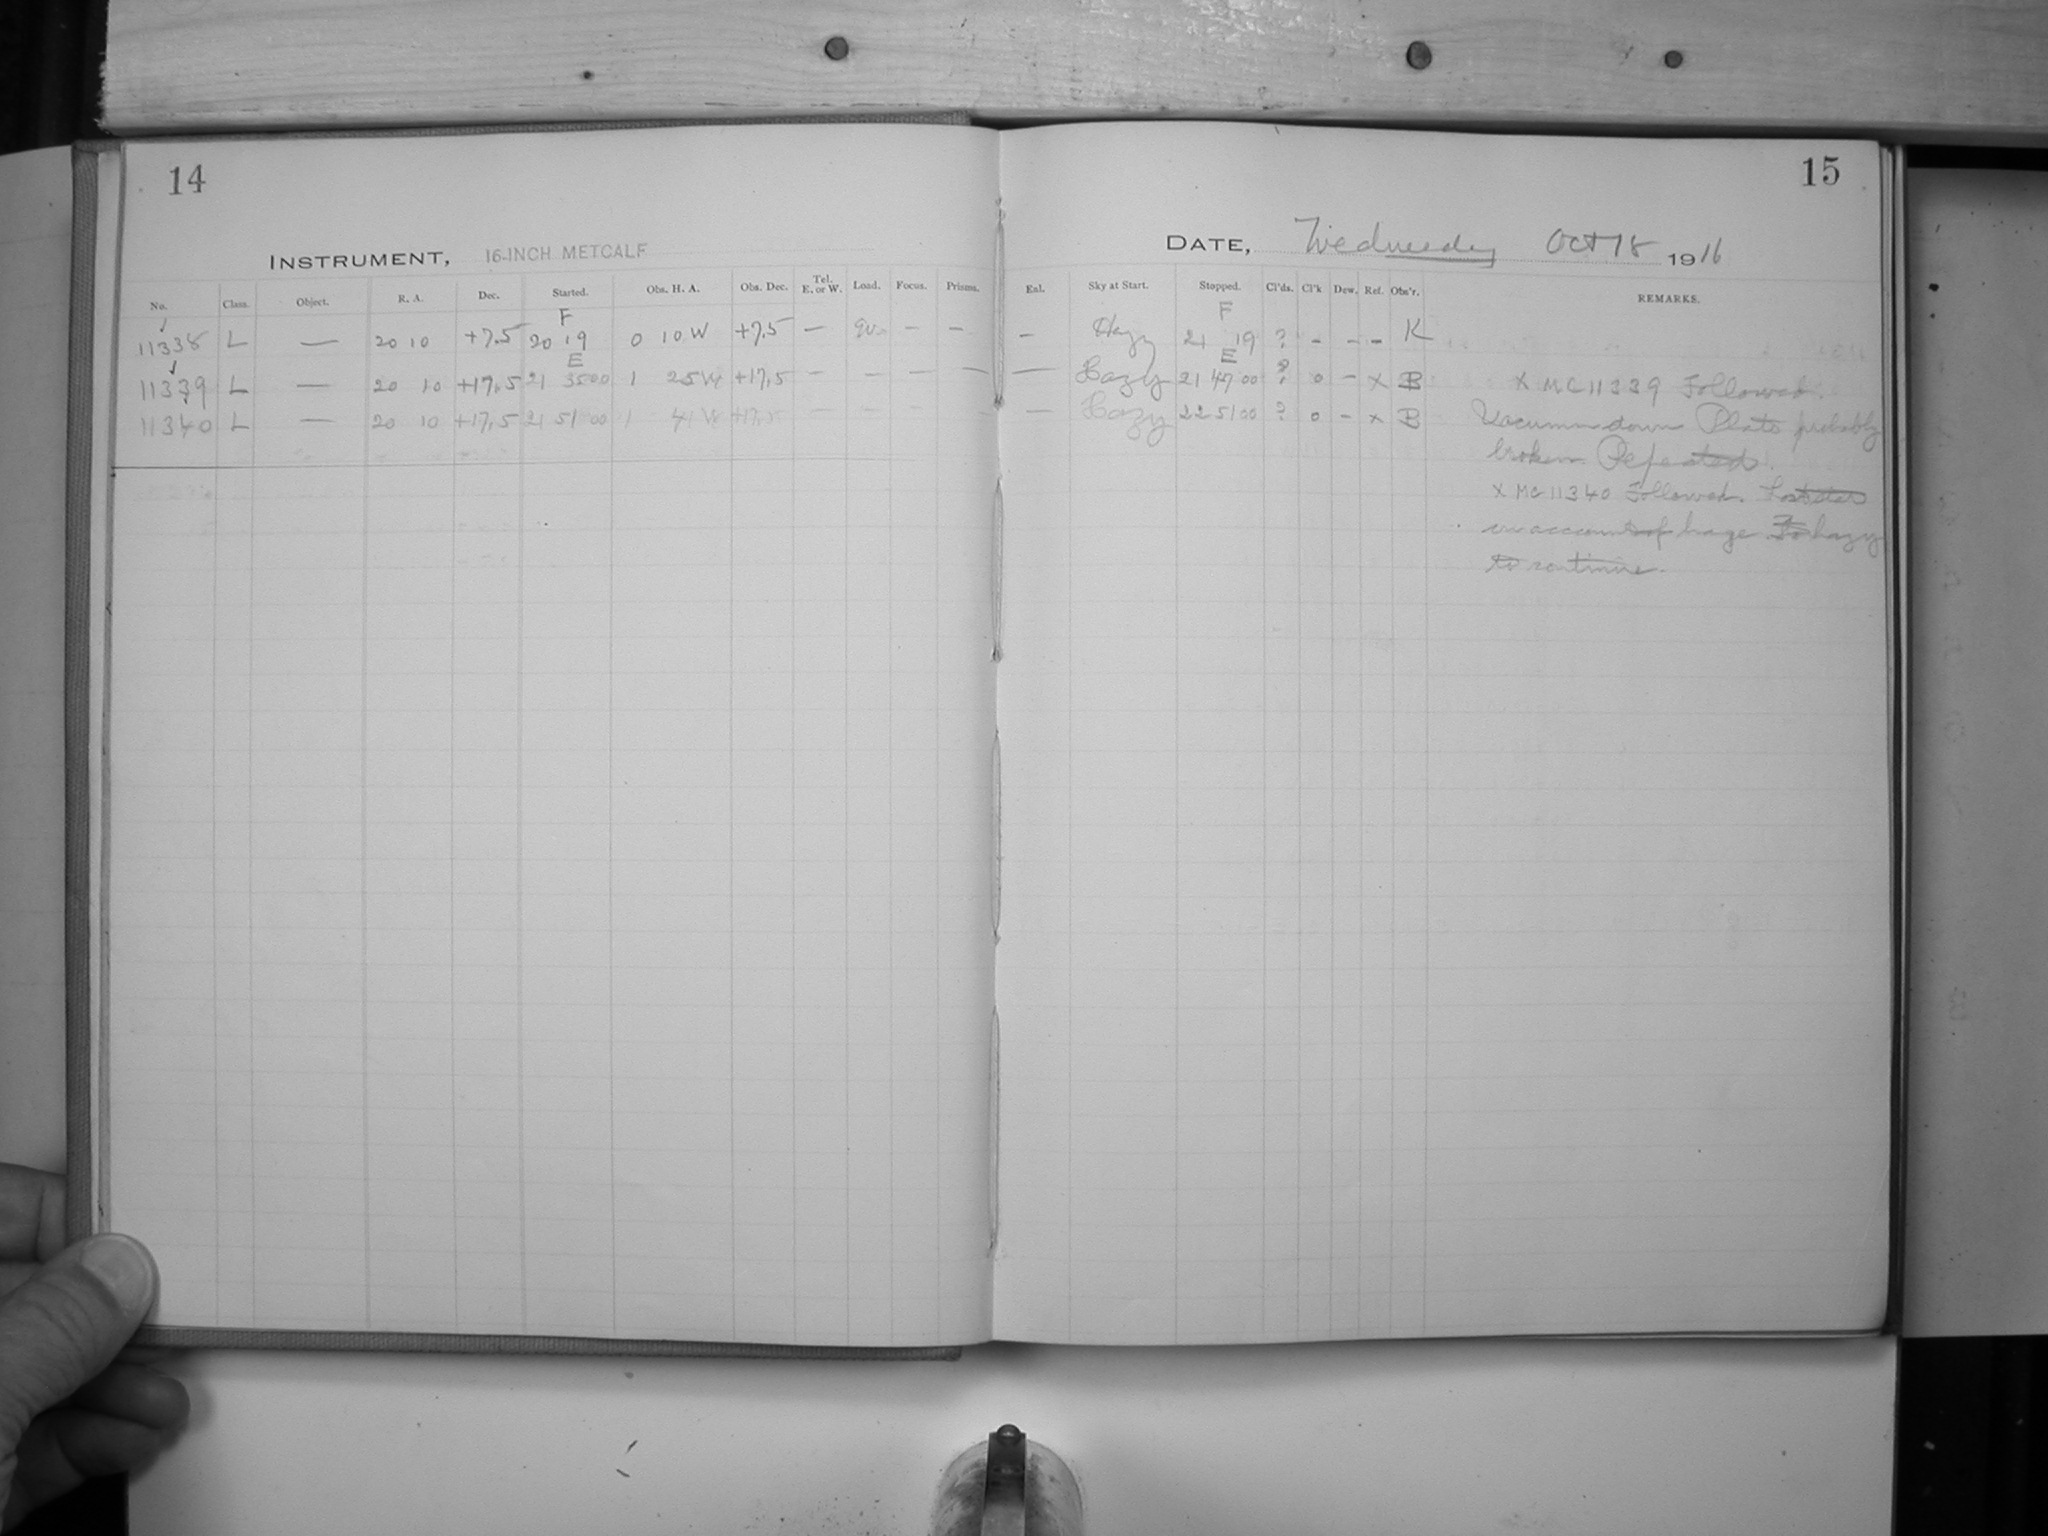 14
15
INSTRUMENT, 16-INCH METCALF
DATE, Wednesday Oct 18 1916
No. Class. Object. R. A. Dec. Started. Obs. H. A. Obs. Dec. Tel. E. or W. Load. Focus. Prisms. Enl. Sky at Start. Stopped. Cl'ds. Cl'k Dew. Ref. Obs'r. REMARKS.
F F
11338 L — 20 10 +7.5 20 19 0 10 W +7.5 — — — — Hazy 21 19 ? - - - K
E E
11339 L — 20 10 +17.5 21 35 00 1 25 W +17.5 — — — — — Hazy 21 47 00 ? 0 - x B x MC 11339 Followed.
11340 L — 20 10 +17.5 21 51 00 1 41 W +17.5 — — — — — Hazy 22 51 00 ? 0 - x B Vacuum down Plate probably
broken. Repeated.
x MC 11340 Followed. Lost star
on account of haze. Too hazy
to continue.